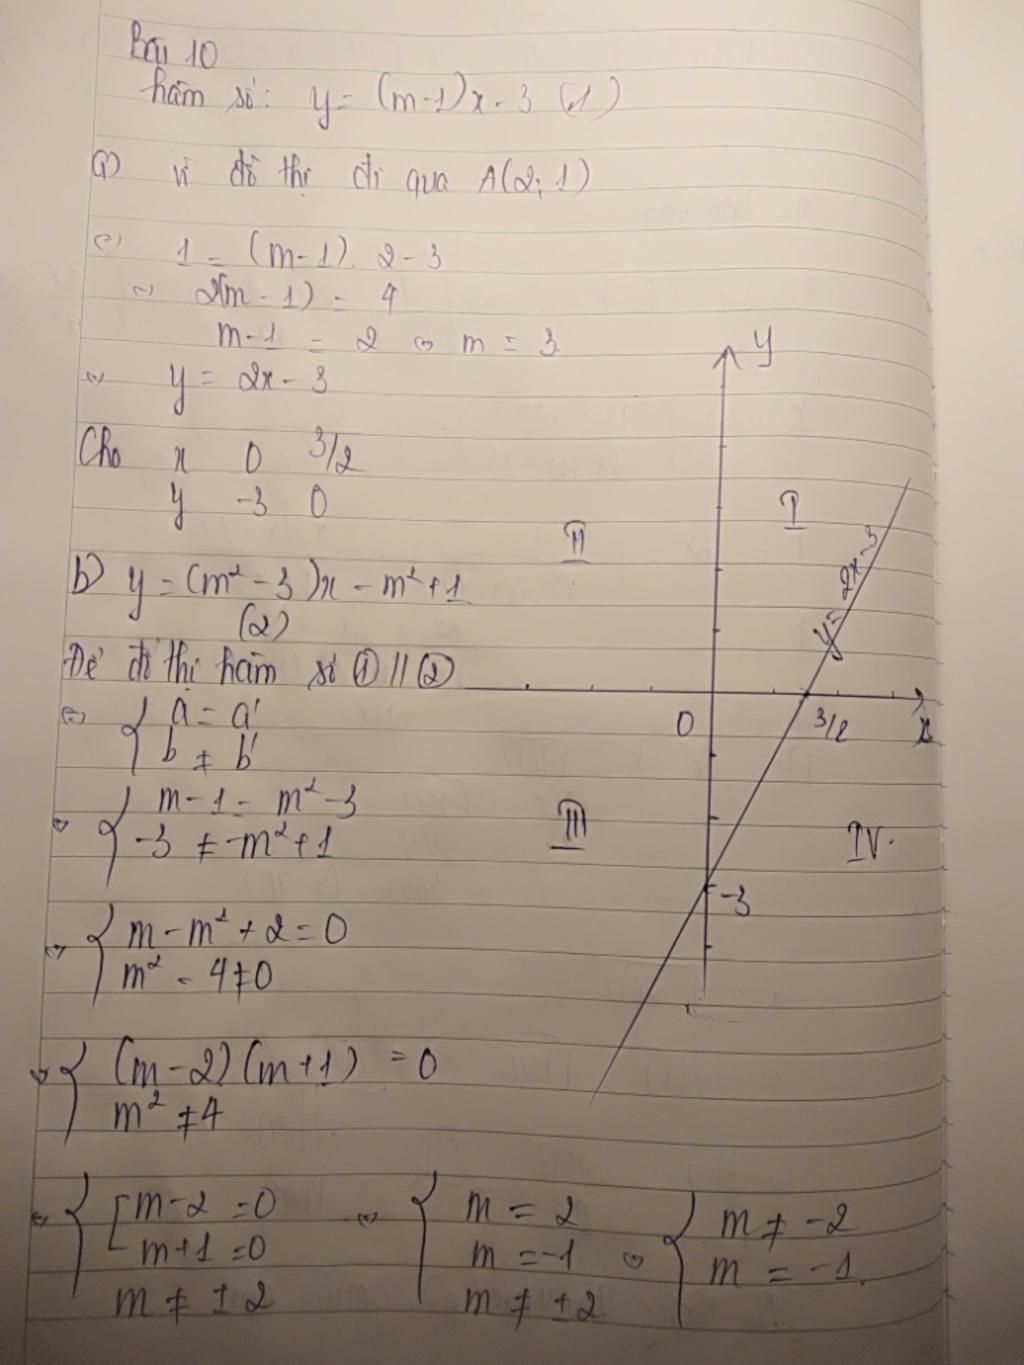 Bài 10
hàm số: y = (m-1)x - 3 (1)
a) vì đồ thị đi qua A(2; 1)
(=) 1 = (m-1). 2 - 3
(=) 2(m-1) = 4
m-1 = 2 (=) m = 3.
(=) y = 2x - 3
Cho x 0 3/2
y -3 0
b) y = (m² - 3)x - m² + 1
(2)
Để đồ thị hàm số ① // ②
(=) { a = a'
b ≠ b'
(=) { m - 1 = m² - 3
-3 ≠ -m² + 1
(=) { m - m² + 2 = 0
m² - 4 ≠ 0
(=) { (m-2)(m+1) = 0
m² ≠ 4
(=) { [ m-2 = 0 (=) { m = 2 (=) { m ≠ -2
m+1 = 0 m = -1 m = -1.
m ≠ ±2 m ≠ ±2
y
I
II
y = 2x - 3
0
3/2
x
III
IV.
-3